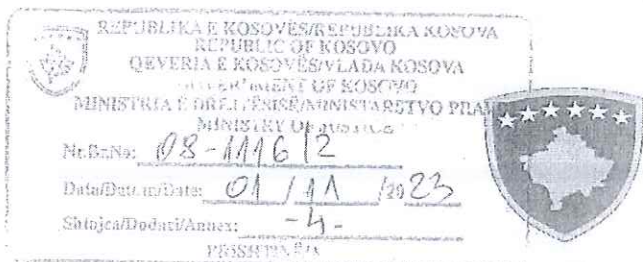 REPUBLIKA E KOSOVËS/REPUBLIKA KOSOVA
REPUBLIC OF KOSOVO
QEVERIA E KOSOVËS/VLADA KOSOVA
GOVERNMENT OF KOSOVO
MINISTRIA E DREJTËSISË/MINISTARSTVO
MINISTRY OF JUSTICE
Nr./Br./No: 08-1116/2
Data/Datum/Date: 01 / 11 /2023
Shtojca/Dodaci/Annex: -4-
PRISHTINË/A